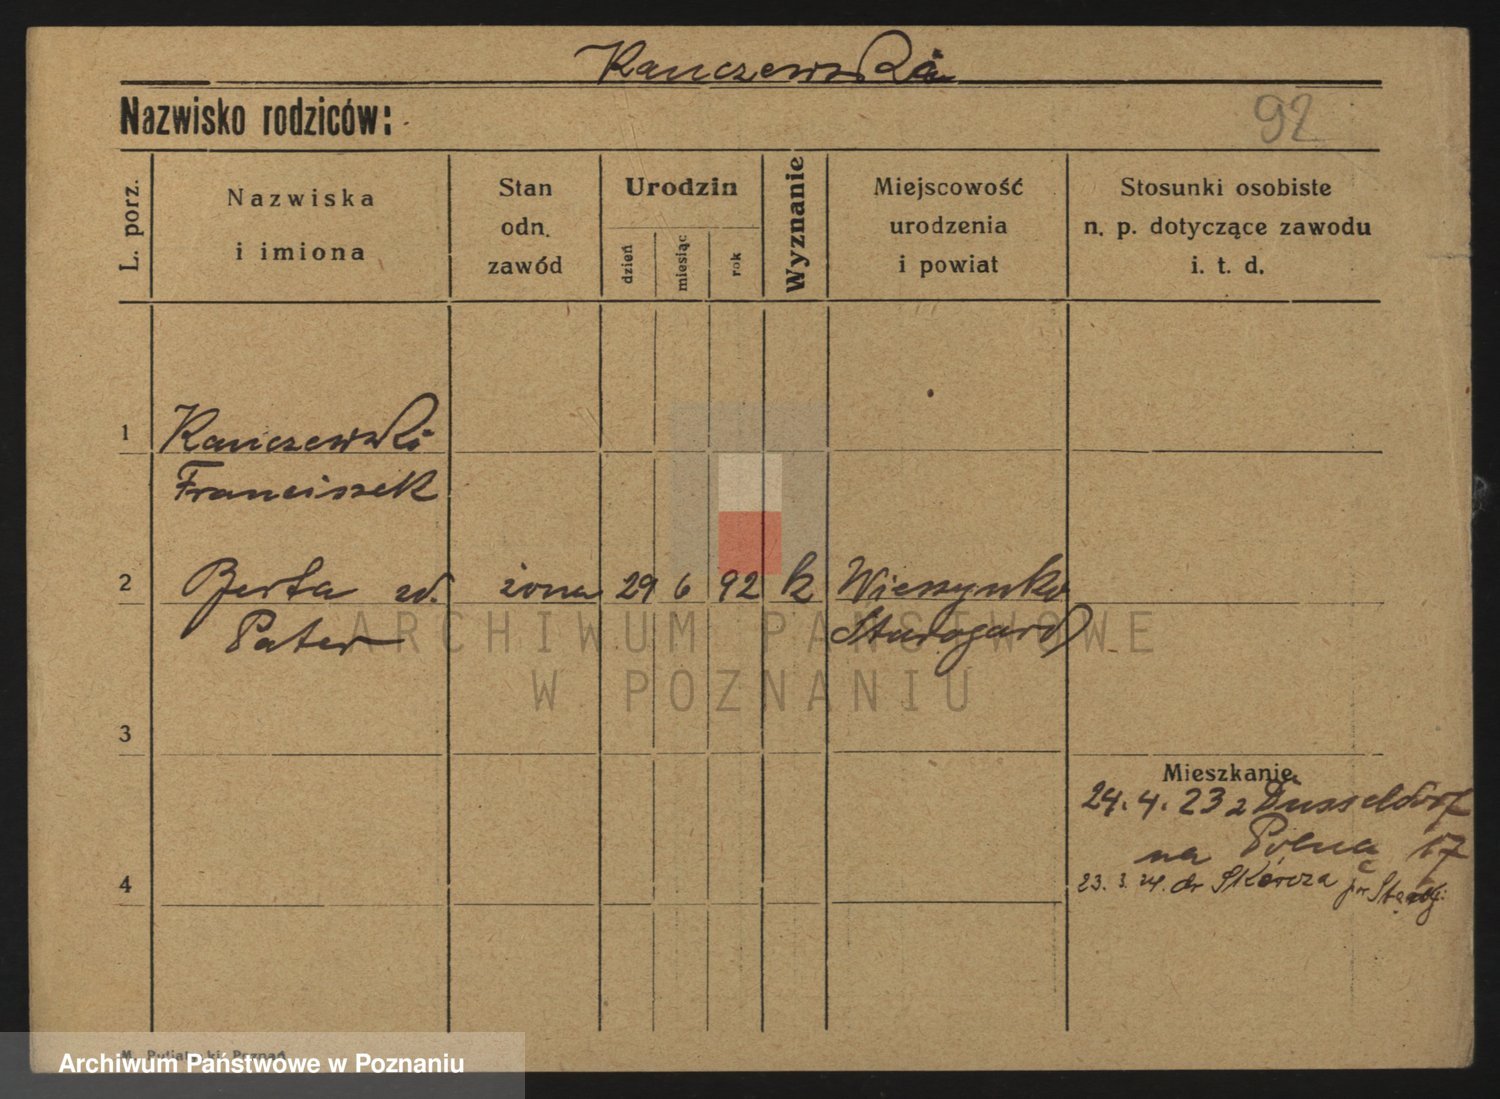 Kanczewska
Nazwisko rodziców:
92
L. porz.
Nazwiska
i imiona
Stan
odn.
zawód
Urodzin
dzień
miesiąc
rok
Wyznanie
Miejscowość
urodzenia
i powiat
Stosunki osobiste
n. p. dotyczące zawodu
i. t. d.
1 Kanczewski
Franciszek
2 Berta zd. żona 29 6 92 k
Pater Starogard
ARCHIWUM PAŃSTWOWE
W POZNANIU
3
Mieszkanie
24.4.23 z Dusseldorf
na Polną 17
4
23.3.24. do Skórcza
Archiwum Państwowe w Poznaniu